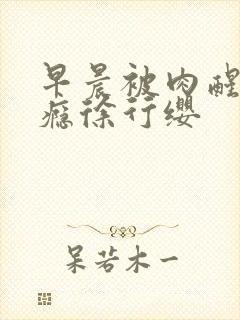 早晨被肉醒
瘾徐行缨
呆若木一